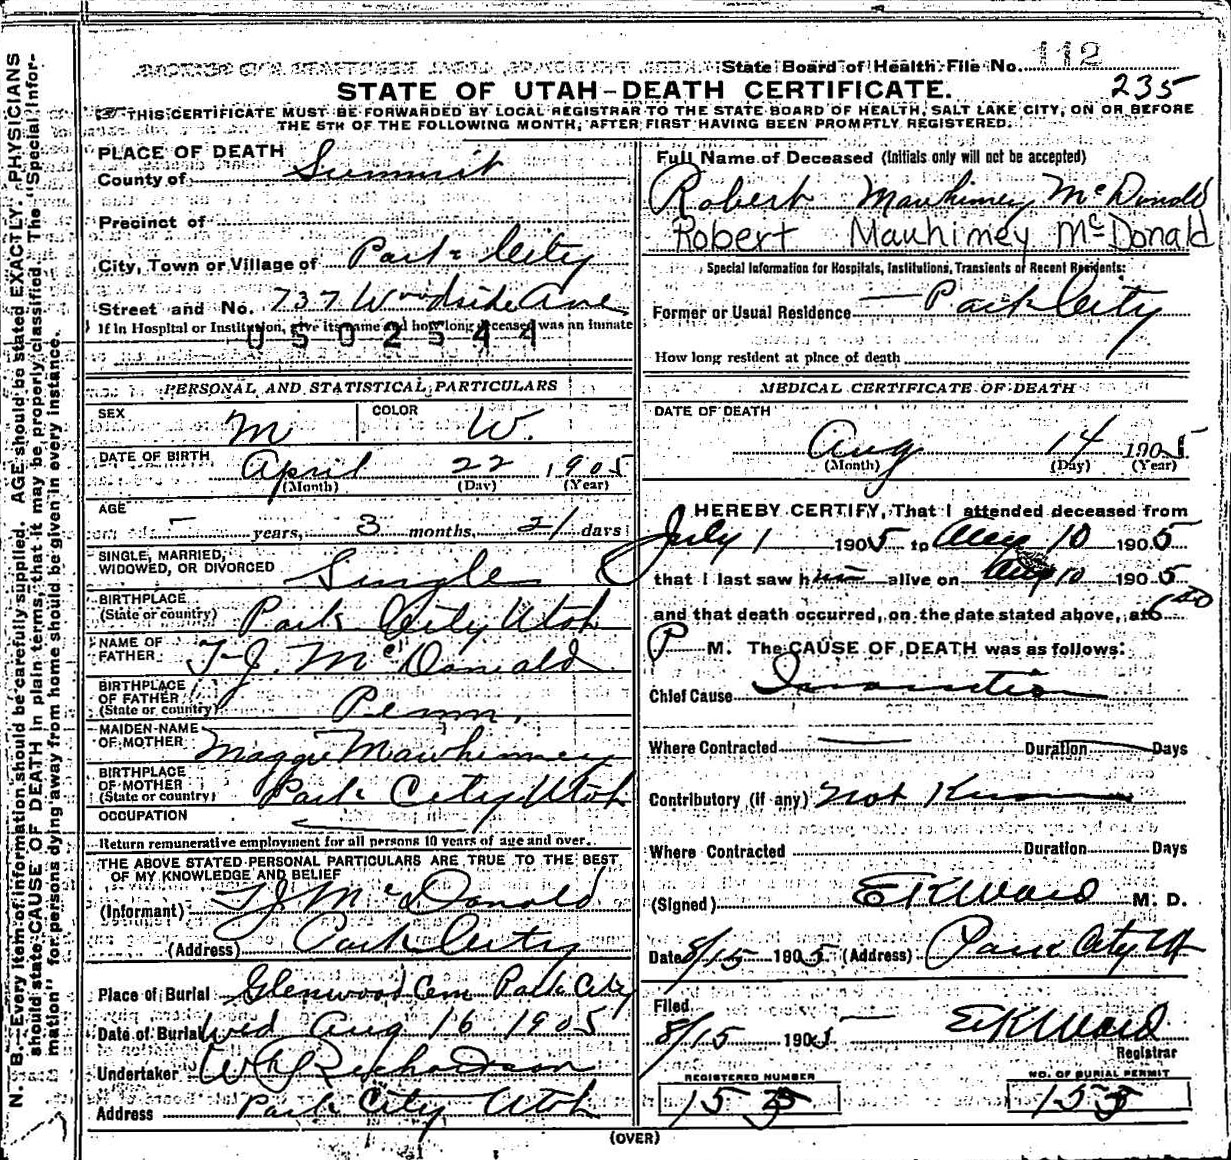 State Board of Health File No. 112
235
STATE OF UTAH-DEATH CERTIFICATE.
THIS CERTIFICATE MUST BE FORWARDED BY LOCAL REGISTRAR TO THE STATE BOARD OF HEALTH, SALT LAKE CITY, ON OR BEFORE
THE 5TH OF THE FOLLOWING MONTH, AFTER FIRST HAVING BEEN PROMPTLY REGISTERED.
N. B.—Every item of information should be carefully supplied. AGE should be stated EXACTLY. PHYSICIANS
should state CAUSE OF DEATH in plain terms, that it may be properly classified. The "Special Infor-
mation" for persons dying away from home should be given in every instance.
PLACE OF DEATH
County of Summit
Precinct of
City, Town or Village of Park City
Street and No. 737 Woodside Ave
If in Hospital or Institution, give its name and how long deceased was an inmate
0502544
PERSONAL AND STATISTICAL PARTICULARS
SEX M COLOR W.
DATE OF BIRTH April 22 1905
(Month) (Day) (Year)
AGE
- years, 3 months, 21 days
SINGLE, MARRIED,
WIDOWED, OR DIVORCED Single
BIRTHPLACE
(State or country) Park City Utah
NAME OF
FATHER T. J. McDonald
BIRTHPLACE
OF FATHER
(State or country) Penn.
MAIDEN NAME
OF MOTHER Maggie Mawhimey
BIRTHPLACE
OF MOTHER
(State or country) Park City Utah
OCCUPATION
Return remunerative employment for all persons 10 years of age and over.
THE ABOVE STATED PERSONAL PARTICULARS ARE TRUE TO THE BEST
OF MY KNOWLEDGE AND BELIEF
(Informant) T J McDonald
(Address) Park City
Place of Burial Glenwood Cem Park City
Date of Burial Wed Aug 16 1905
Undertaker W Richardson
Address Park City Utah
Full Name of Deceased (Initials only will not be accepted)
Robert Mawhimey McDonald
Robert Mauhimey McDonald
Special Information for Hospitals, Institutions, Transients or Recent Residents:
Former or Usual Residence — Park City
How long resident at place of death
MEDICAL CERTIFICATE OF DEATH
DATE OF DEATH
Aug 14 1905
(Month) (Day) (Year)
I HEREBY CERTIFY, That I attended deceased from
July 1 1905 to Aug 10 1905
that I last saw him alive on Aug 10 1905
and that death occurred, on the date stated above, at 6 00
P M. The CAUSE OF DEATH was as follows:
Chief Cause Inanition
Where Contracted — Duration — Days
Contributory (if any) not Known
Where Contracted Duration Days
(Signed) E K Ward M. D.
Date 8/15 1905 (Address) Park City Ut
Filed
8/15 1905 — E K Ward
Registrar
REGISTERED NUMBER NO. OF BURIAL PERMIT
(OVER)